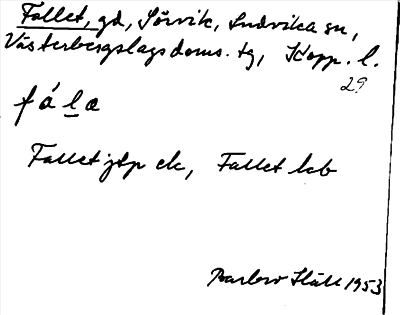 Fallet, gd, Sörvik, Ludvika sn,
Västerbergslags doms. tg, Kopp. l.
29
fála
Fallet jtp ek, Fallet hcb
1953